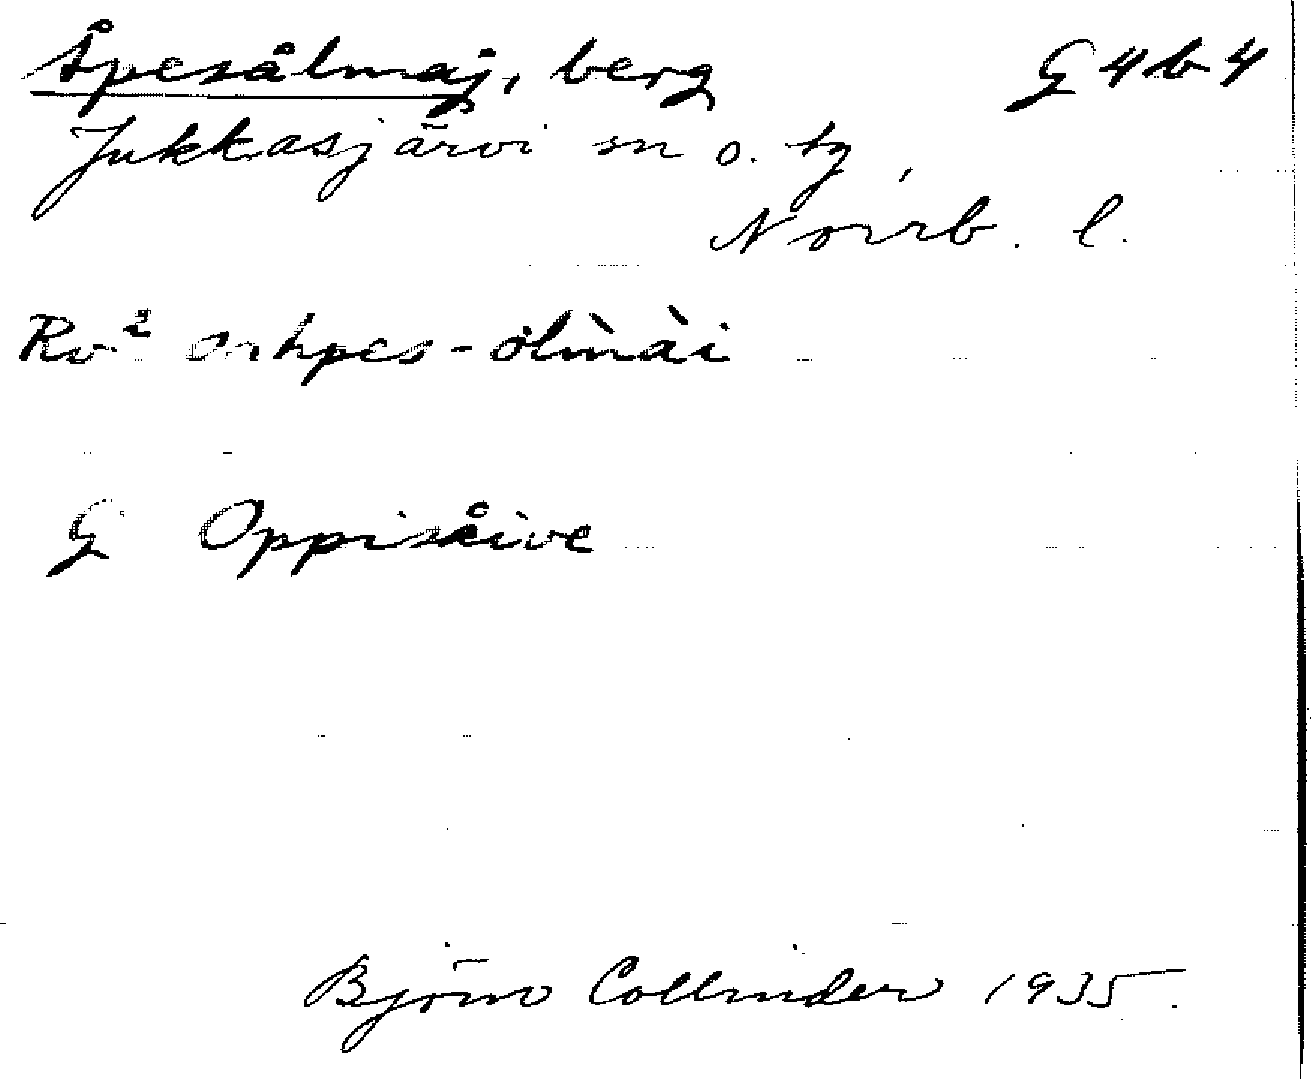 Åpesålmaj, berg G 4 b 4
Jukkasjärvi sn o. tg,
Norrb. l.
Rv² -ol̀mài
G Oppisåive
Björn Collinder 1935.